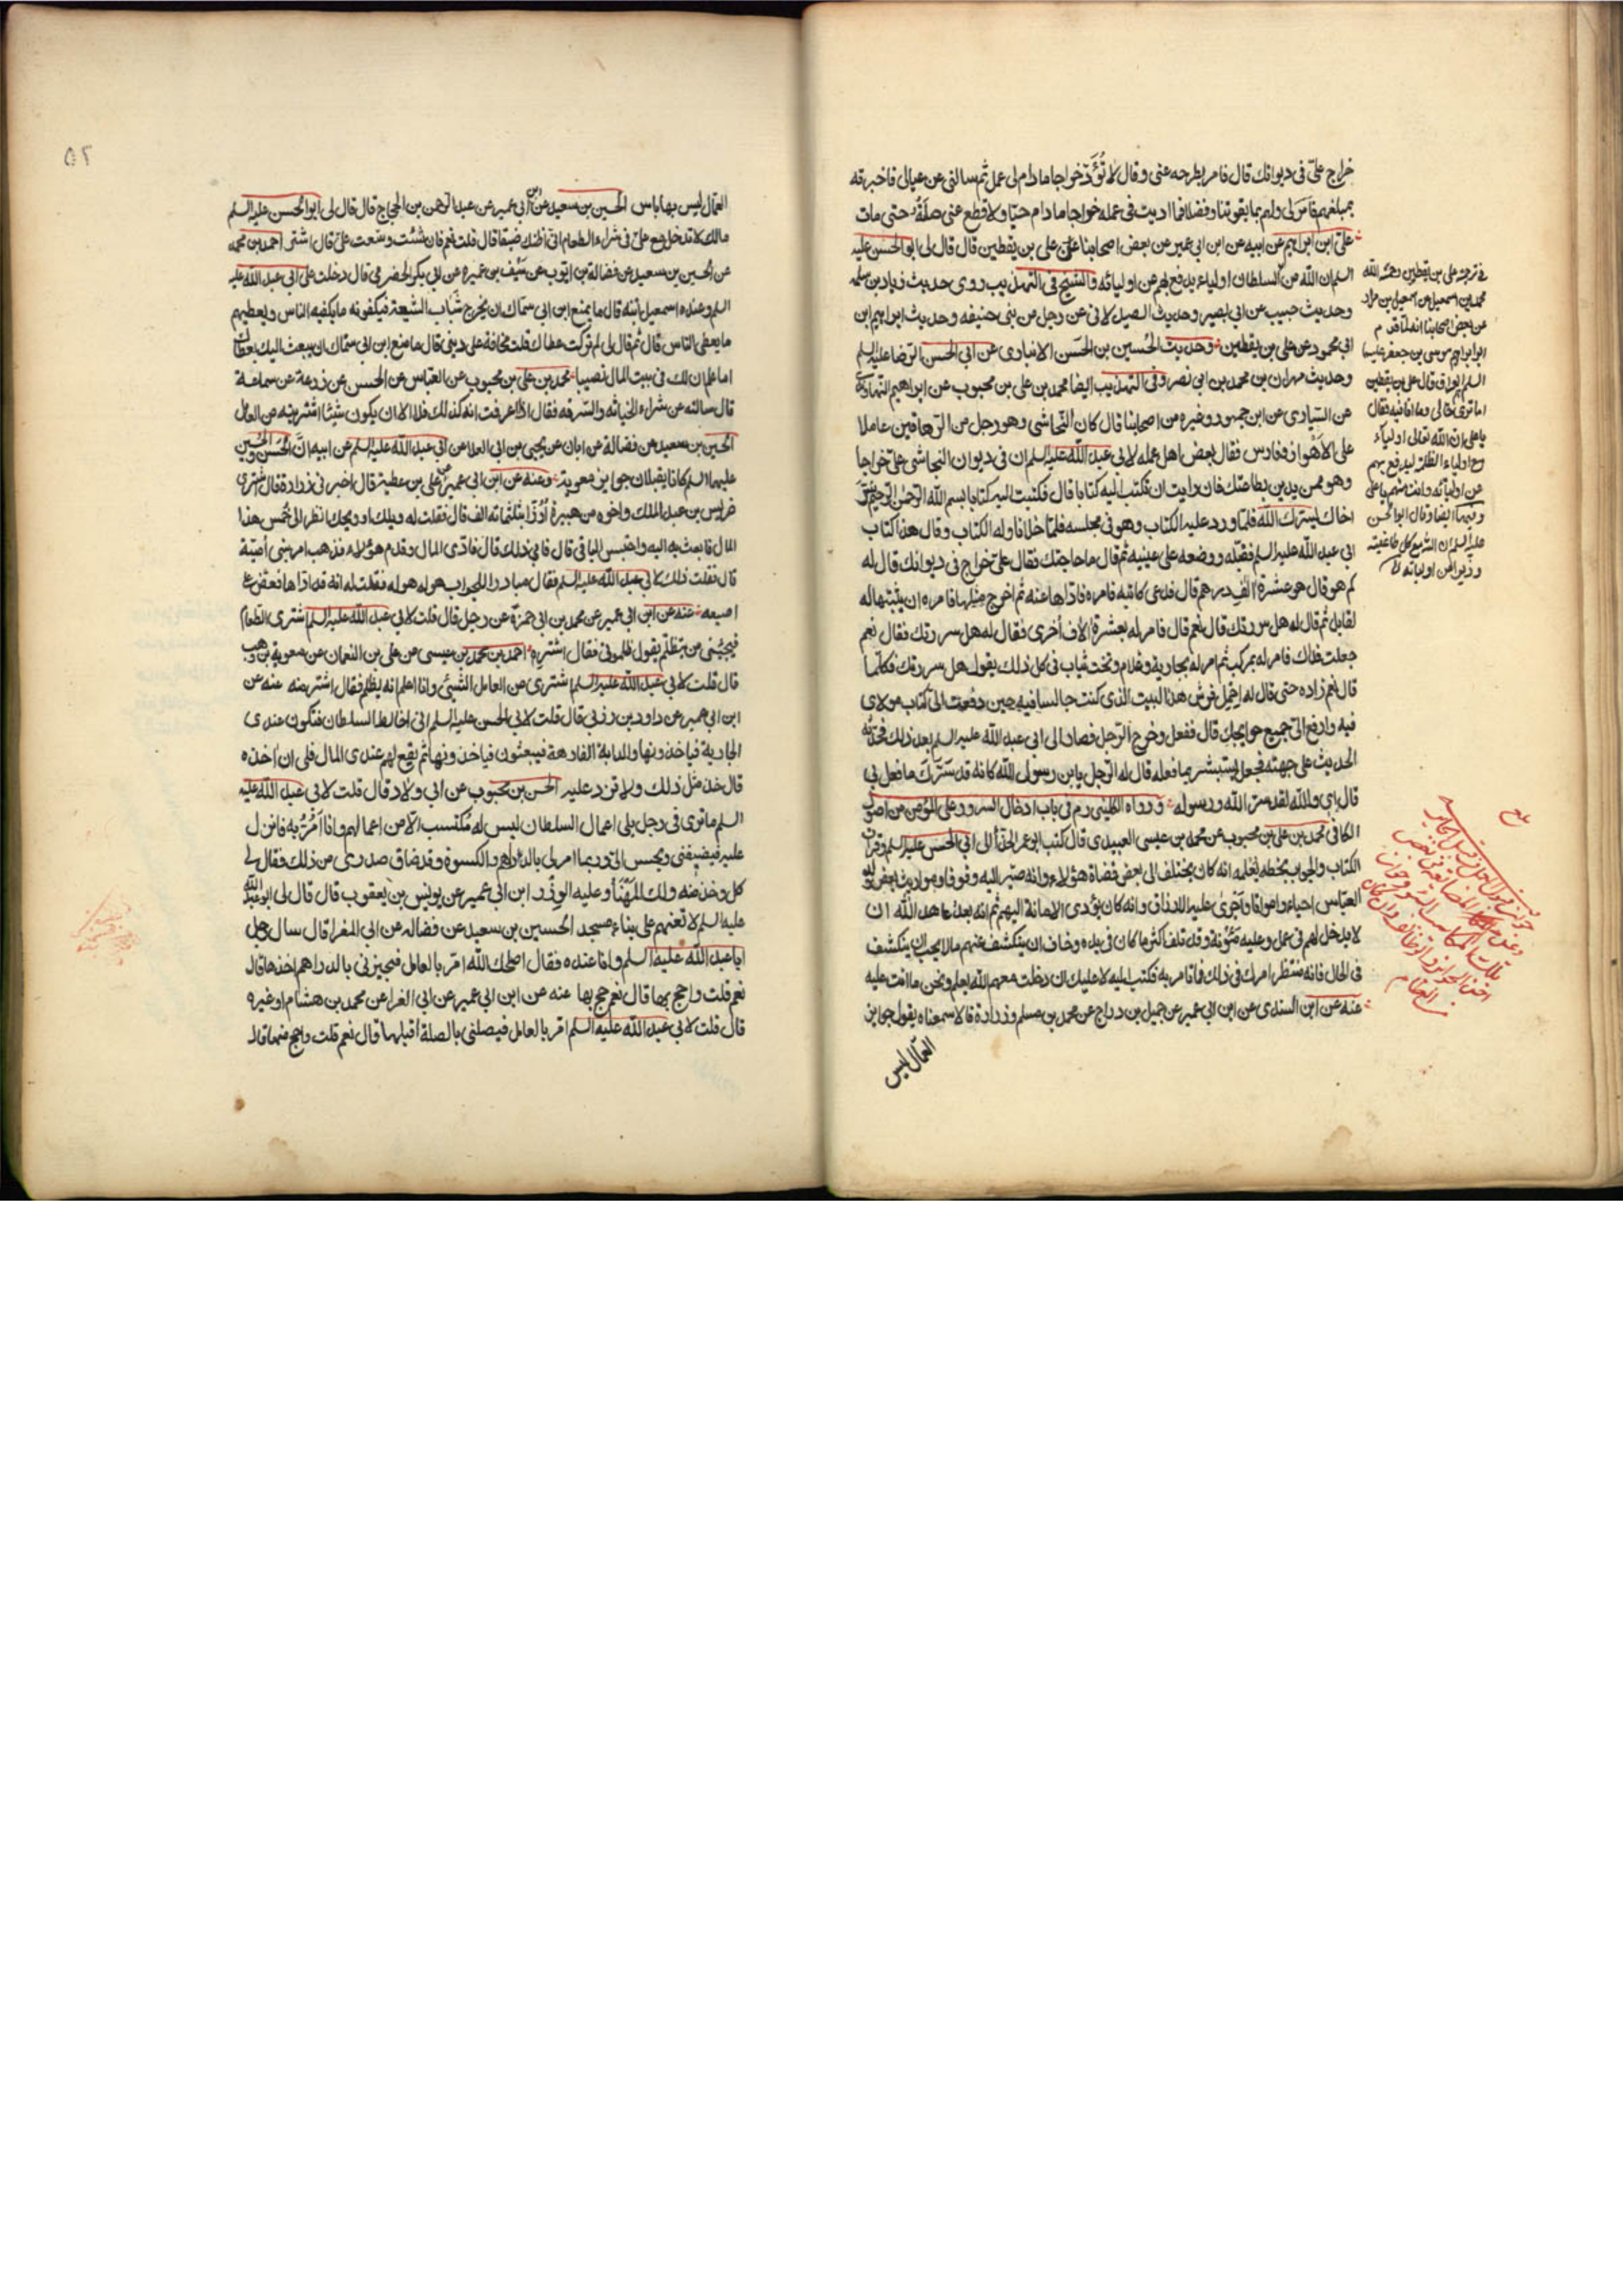 خراج علىّ فى ديوانك قال فامر بطرحه عنى وقال لا تؤدّ خراجا ما دام لى عمل ثم سالنى عن عيالى فاخبرته
بمبلغهم فامر لى ولهم بما يقوتنا وفضلا فما اديت فى عمله خراجا ما دام حيا ولا قطع عنى صلته حتى مات
على ابن ابراهيم عن ابيه عن ابن ابى عمير عن بعض اصحابنا عن على بن يقطين قال قال لى ابو الحسن عليه
السلم ان الله مع السلطان اولياء يدفع بهم عن اوليائه والشيخ فى التهذيب روى حديث زياد بن سلمه
وحديث حبيب عن ابى بصير وحديث الصيل لانى عن رجل من بنى حنيفه وحديث ابراهيم ابن
ابى محمود عن على بن يقطين وحديث الحسين بن الحسن الانبارى عن ابى الحسن الرضا عليه السلم
وحديث مهران بن محمد بن ابى نصر وفى التهذيب ايضا محمد بن على بن محبوب عن ابراهيم النهاوندى
عن السيارى عن ابن جمهور وغيره من اصحابنا قال كان النجاشى وهو رجل من الدهاقين عاملا
على الاهواز وفارس فقال بعض اهل عمله لابى عبد الله عليه السلم ان فى ديوان النجاشى علىّ خراجا
وهو ممن يدين بطاعتك فان رايت ان تكتب اليه كتابا قال فكتب اليه كتابا بسم الله الرحمن الرحيم سرّ
اخاك يسرّك الله فلما ورد عليه الكتاب وهو فى مجلسه فلما خلا ناوله الكتاب وقال هذا كتاب
ابى عبد الله عليه السلم فقبّله ووضعه على عينيه ثم قال ما حاجتك فقال علىّ خراج فى ديوانك قال له
كم هو قال هو عشرة الف درهم قال فدعى كاتبه فامره فادّاها عنه ثم اخرج مثلها فامره ان يثبتها له
لقابل ثم قال له هل سررتك قال نعم قال فامر له بعشرة الاف أخرى فقال له هل سررتك فقال نعم
جعلت فداك فامر له بمركب ثم امر له بجارية وغلام وتخت ثياب فى كل ذلك يقول هل سررتك فكلما
قال نعم زاده حتى قال له احمل فرش هذا البيت الذى كنت جالسا فيه حين دفعت الىّ كتاب مولاى
فيه وارفع الىّ جميع حوايجك قال ففعل وخرج الرجل فصار الى ابى عبد الله عليه السلم بعد ذلك فحدّثه
الحديث على جهته فجعل يستبشر بما فعله قال له الرجل يا بن رسول الله كانه قد سرّك ما فعل بى
قال اى والله لقد سرّ الله ورسوله ورواه الكلينى ره فى باب ادخال السرور على المؤمن من اصول
الكافى محمد بن على بن محبوب عن محمد بن عيسى العبيدى قال كتب ابو عمر الحذّا الى ابى الحسن عليه السلم وقرأت
الكتاب والجواب بخطه يعلمه انه كان يختلف الى بعض قضاة هؤلاء وانه صيّر اليه وقوفا ومواريث بعض ولد
العباس احياء وامواتا واجرى عليه الارزاق وانه كان يؤدى الامانة اليهم ثم انه بعد عاهد الله ان
لا يدخل لهم فى عمل وعليه مئونة وقد تلف اكثر ما كان فى يده وخاف ان ينكشف عنهم ما لا يحب ان ينكشف
فى الحال فانه منتظر امرك فى ذلك فما تامر به فكتب اليه لا عليك ان دخلت معهم الله يعلم ونحن ما انت عليه
عنه عن ابن السندى عن ابن ابى عمير عن جميل بن دراج عن محمد بن مسلم وزرارة قالا سمعناه يقول جوايز
العمّال ليس
فى ترجمة على بن يقطين رحمه الله
محمد بن اسمعيل عن اسمعيل بن مراد
عن بعض اصحابنا انه لما قدم
ابو ابراهيم موسى بن جعفر عليهما
السلم العراق قال على بن يقطين
اما ترى حالى وما انا فيه فقال
يا على ان الله تعالى اولياء
مع اولياء الظلمة ليدفع بهم
عن اوليائه وانت منهم يا على
٥٢
العمّال ليس بها باس الحسين بن سعيد عن ابن ابى عمير عن عبد الرحمن بن الحجاج قال قال لى ابو الحسن عليه السلم
مالك لا تدخل مع علىّ فى شراء الطعام انى اظنك ضيّقا قال قلت نعم فان شئت وسّعت علىّ قال اشتره احمد بن محمد
عن الحسين بن سعيد عن فضالة بن ايوب عن سيف بن عميرة عن ابى بكر الحضرمى قال دخلت على ابى عبد الله عليه
السلم وعنده اسمعيل ابنه قال ما يمنع ابن ابى سماك ان يخرج شباب الشيعة فيكفونه ما يكفيه الناس ويعطيهم
ما يعطى الناس قال ثم قال لى لم تركت عطاك قلت مخافة على دينى قال ما منع ابن ابى سماك ان يبعث اليك بعطائك
اما علم ان لك فى بيت المال نصيبا محمد بن على بن محبوب عن العباس عن الحسن عن زرعة عن سماعة
قال سالته عن شراء الخيانه والسرقه فقال اذا عرفت انه كذلك فلا الا ان يكون شيئا اشتريته من العمال
الحسين بن سعيد عن فضالة عن ابان عن يحيى بن ابى العلا عن ابى عبد الله عليه السلم عن ابيه انّ الحسن والحسين
عليهما السلم كانا يقبلان جوايز معوية وعنه عن ابن ابى عمير عن على بن عطية قال اخبرنى زرارة قال اشترى
ضريس بن عبد الملك واخوه من هبيرة أرزّا بثلثمائة الف قال فقلت له ويلك او ويحك انظر الى خمس هذا
المال فابعث به اليه واحتبس الباقى قال فابى ذلك قال فادّى المال وقدم هؤلاء فذهب امر بنى أميّة
قال فقلت ذلك لابى عبد الله عليه السلم فقال مبادرا للجواب هو له هو له فقلت له انه قد ادّاها فعضّ على
اصبعه عنه عن ابن ابى عمير عن محمد بن ابى حمزة عن رجل قال قلت لابى عبد الله عليه السلم اشترى الطعام
فيجيئنى من يتظلّم يقول ظلمونى فقال اشتره احمد بن محمد بن عيسى عن على بن النعمان عن معوية بن وهب
قال قلت لابى عبد الله عليه السلم اشترى من العامل الشيئ وانا اعلم انه يظلم فقال اشتر منه عنه عن
ابن ابى عمير عن داود بن رزين قال قلت لابى الحسن عليه السلم انى اخالط السلطان فتكون عندى
الجارية فياخذونها والدابة الفارهة فيبعثون فياخذونها ثم يقع لهم عندى المال فلى ان آخذه
قال خذ مثل ذلك ولا تزد عليه الحسن بن محبوب عن ابى ولاد قال قلت لابى عبد الله عليه
السلم ما ترى فى رجل يلى اعمال السلطان ليس له مكتسب الا من اعمالهم وانا أمرّ به فانزل
عليه فيضيفنى ويحسن الىّ وربما امر لى بالدراهم والكسوة وقد ضاق صدرى من ذلك فقال لى
كل وخذ منه ولك المهنّأ وعليه الوزر ابن ابى عمير عن يونس بن يعقوب قال قال لى ابو عبد الله
عليه السلم لا تعنهم على بناء مسجد الحسين بن سعيد عن فضاله عن ابى المغرا قال سال رجل
ابا عبد الله عليه السلم وانا عنده فقال اصلحك الله امرّ بالعامل فيجيزنى بالدراهم اخذها قال
نعم قلت واحج بها قال نعم حج بها عنه عن ابن ابى عمير عن ابى المغرا عن محمد بن هشام او غيره
قال قلت لابى عبد الله عليه السلم امرّ بالعامل فيصلنى بالصلة أقبلها قال نعم قلت واحج منها قال